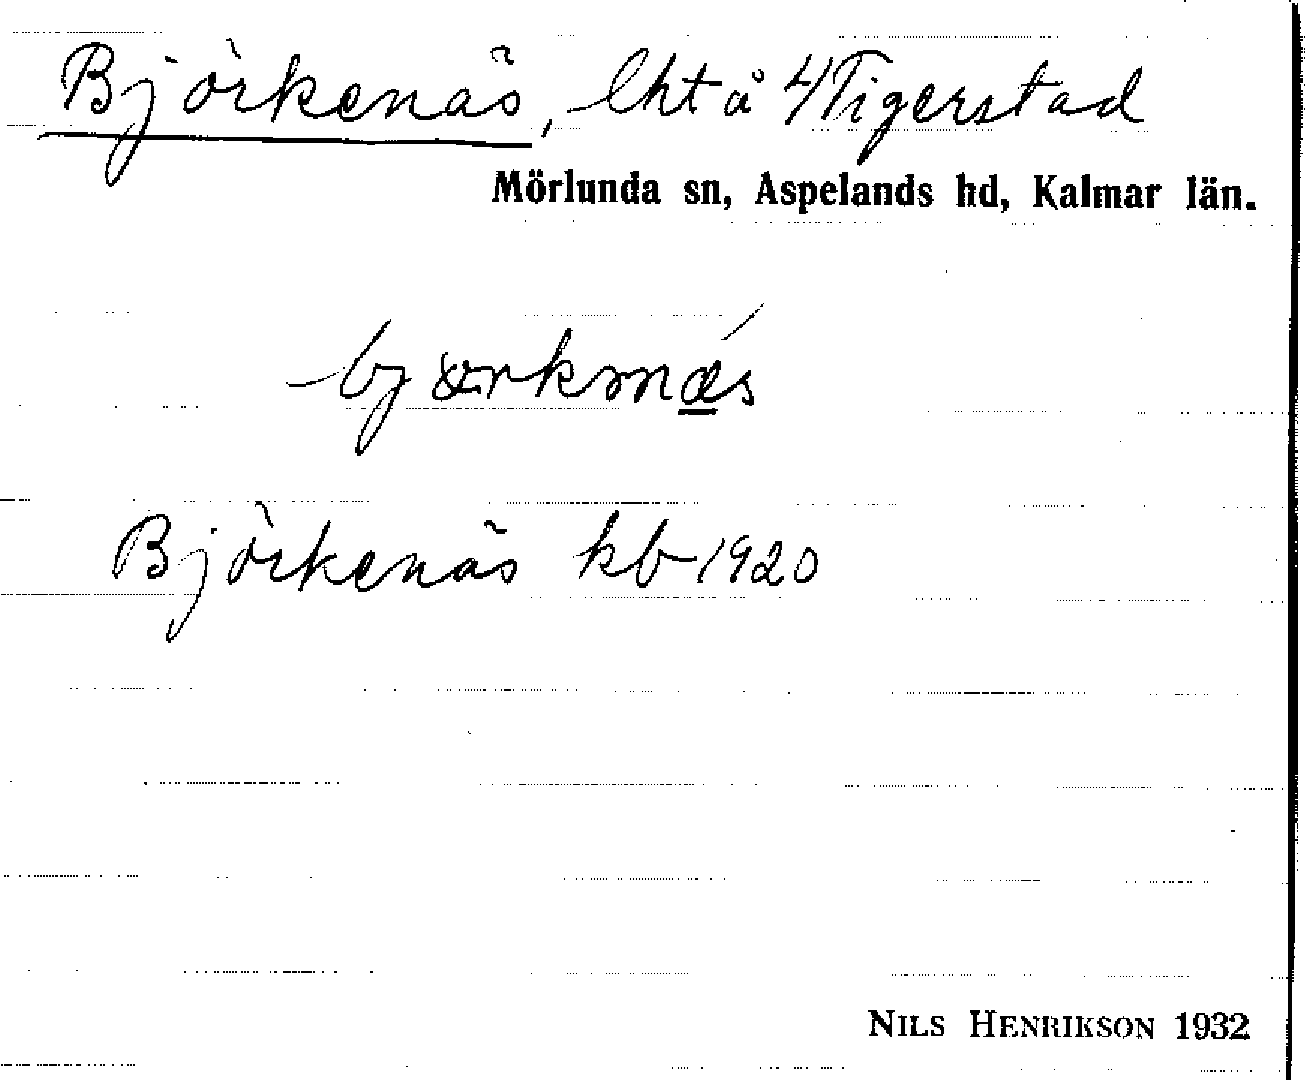 Björkenäs, lht å 4 Tigerstad
Mörlunda sn, Aspelands hd, Kalmar län.
Björkenäs kb 1920
NILS HENRIKSON 1932